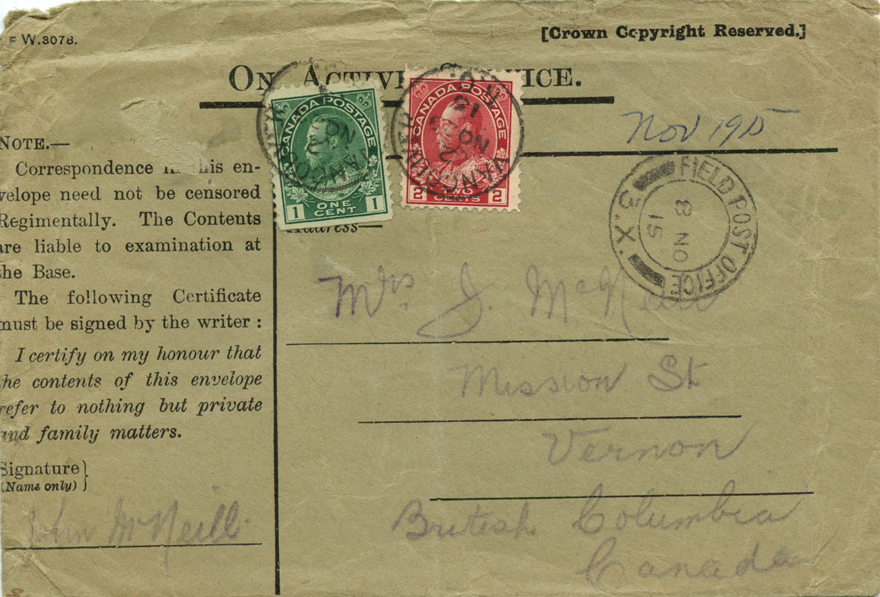 F W.3078.
[Crown Copyright Reserved.]
ON ACTIVE SERVICE.
Nov 1915
NOTE.—
Correspondence in this en-
velope need not be censored
Regimentally. The Contents
are liable to examination at
the Base.
The following Certificate
must be signed by the writer :
I certify on my honour that
the contents of this envelope
refer to nothing but private
and family matters.
Signature
(Name only)
John McNeill
CANADA POSTAGE
1 ONE CENT 1
VANCOUVER
NO
CANADA POSTAGE
2 TWO CENTS 2
VANCOUVER
NO
15
FIELD POST OFFICE
3.X.
8 NO
15
Address—
Mrs J. McNeill
Mission St
Vernon
British Columbia
Canada